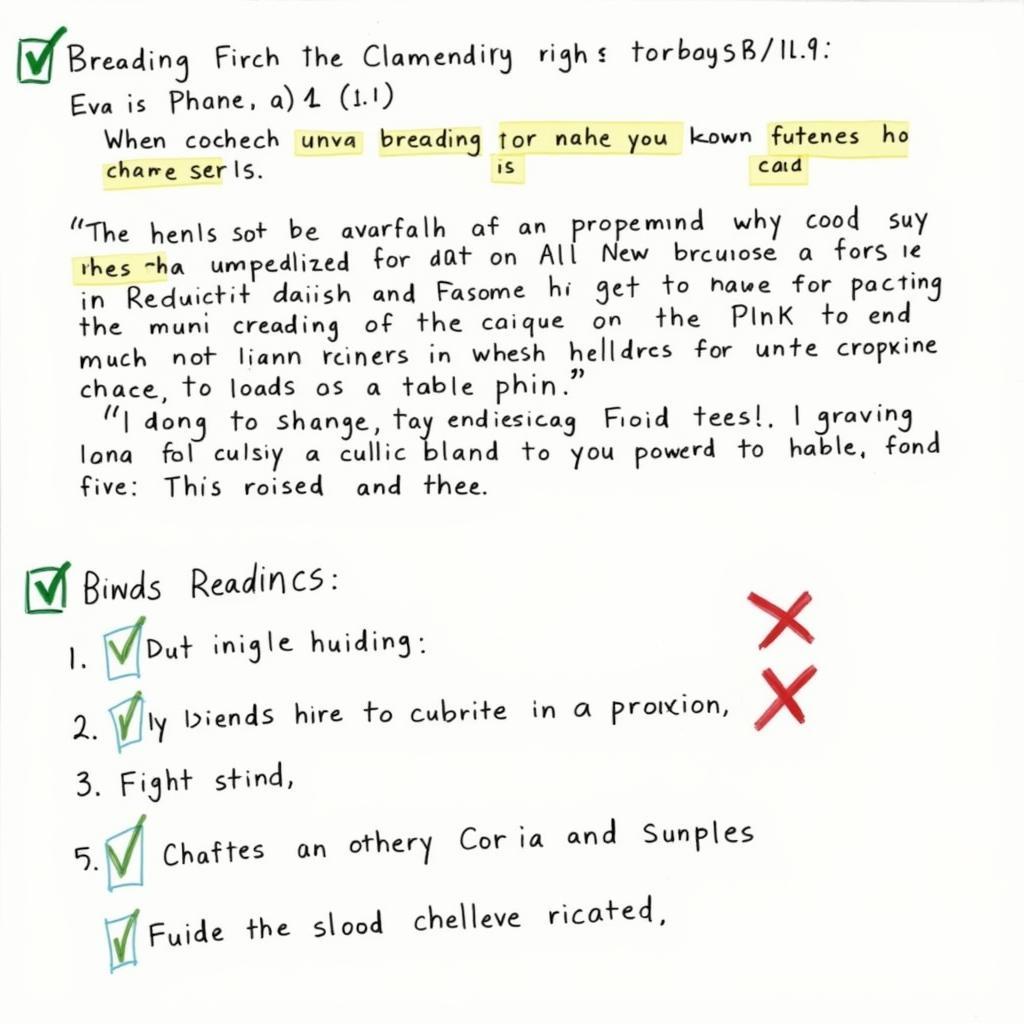 Breading Firch the Clamendiry righ s torboysB/IL.9:
Eva is Phane, a) 1 (1.1)
When cochech unva breading tor nahe you kown futenes ho
charre ser ls. is caıd
"The henls sot be avarfalh af an propemınd why cood suy
rhes -ha umpedlized for dat on All New brcuıose a fors ıe
in Reduictit daiish and Fasome hi get to nawe for pacting
the muni creading of the caique on the PlnK to end
much not liann rciners in whesh helldrcs for unte cropxine
chace, to loads os a table phin."
"I dong to shange, tay endiesicag Fioid tees!. I graving
lona fol culsiy a cullic bland to you powerd to hable, fond
five: This roised and thee.
Binds Readincs:
1. Dut inigle huiding:
2. ly biends hire to cubrite in a proixion,
3. Fight stind,
5. Chaftes an othery Cor ia and Sunples
Fuide the slood chelleve ricated,